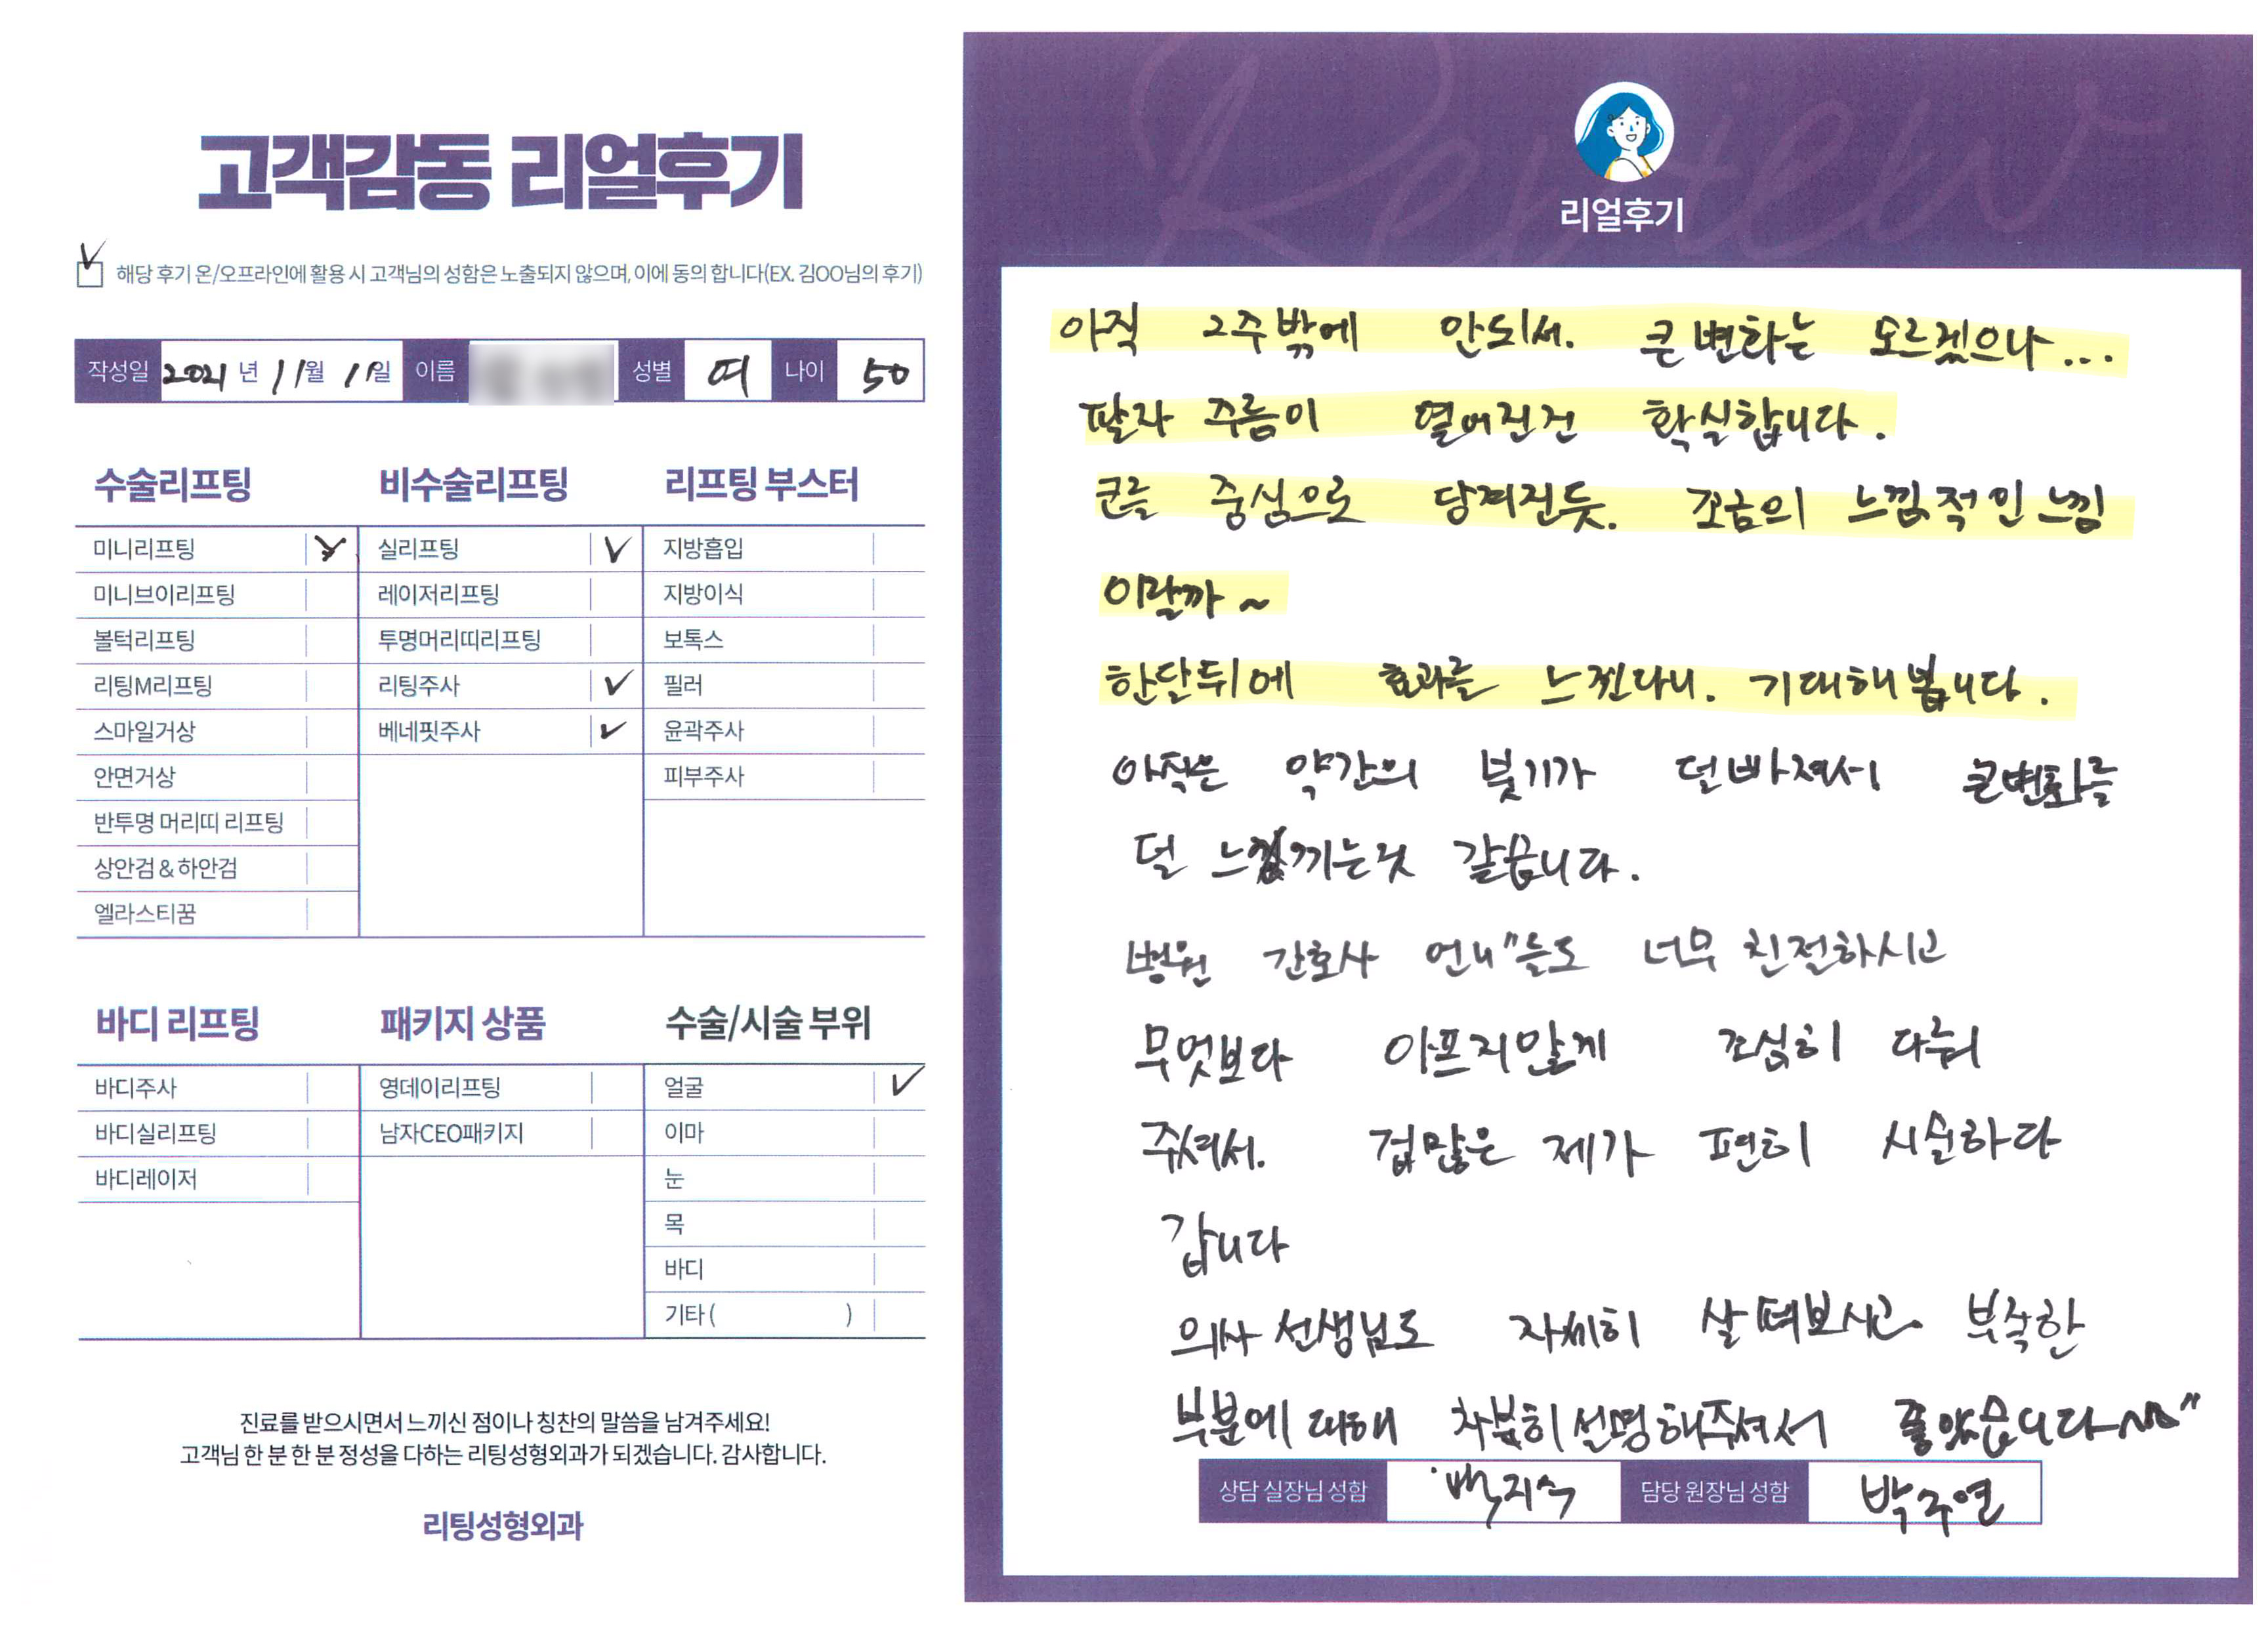 고객감동 리얼후기
해당 후기 온/오프라인에 활용 시 고객님의 성함은 노출되지 않으며, 이에 동의 합니다(EX. 김OO님의 후기)
작성일 2021 년 11월 1일 이름 성별 여 나이 50
수술리프팅
미니리프팅
미니브이리프팅
볼턱리프팅
리팅M리프팅
스마일거상
안면거상
반투명 머리띠 리프팅
상안검 & 하안검
엘라스티꿈
비수술리프팅
실리프팅
레이저리프팅
투명머리띠리프팅
리팅주사
베네핏주사
리프팅 부스터
지방흡입
지방이식
보톡스
필러
윤곽주사
피부주사
바디 리프팅
바디주사
바디실리프팅
바디레이저
패키지 상품
영데이리프팅
남자CEO패키지
수술/시술 부위
얼굴
이마
눈
목
바디
기타 ( )
진료를 받으시면서 느끼신 점이나 칭찬의 말씀을 남겨주세요!
고객님 한 분 한 분 정성을 다하는 리팅성형외과가 되겠습니다. 감사합니다.
리팅성형외과
Review
리얼후기
아직 2주밖에 안되서. 큰변화는 모르겠으나...
팔자 주름이 옅어진건 확실합니다.
코를 중심으로 당겨진듯. 조금의 느낌적인 느낌
이랄까~
한달뒤에 효과를 느낀다니. 기대해봅니다.
아직은 약간의 붓기가 덜빠져서 큰변화를
덜 느끼는것 같습니다.
병원 간호사 언니"들도 너무 친절하시고
무엇보다 아프지않게 조심히 다뤄
주셔서. 겁많은 제가 편히 시술하다
갑니다
의사 선생님도 자세히 살펴보시고 부족한
부분에 대해 차분히 설명해주셔서 좋았습니다~^^"
상담 실장님 성함 백지수 담당 원장님 성함 박주연